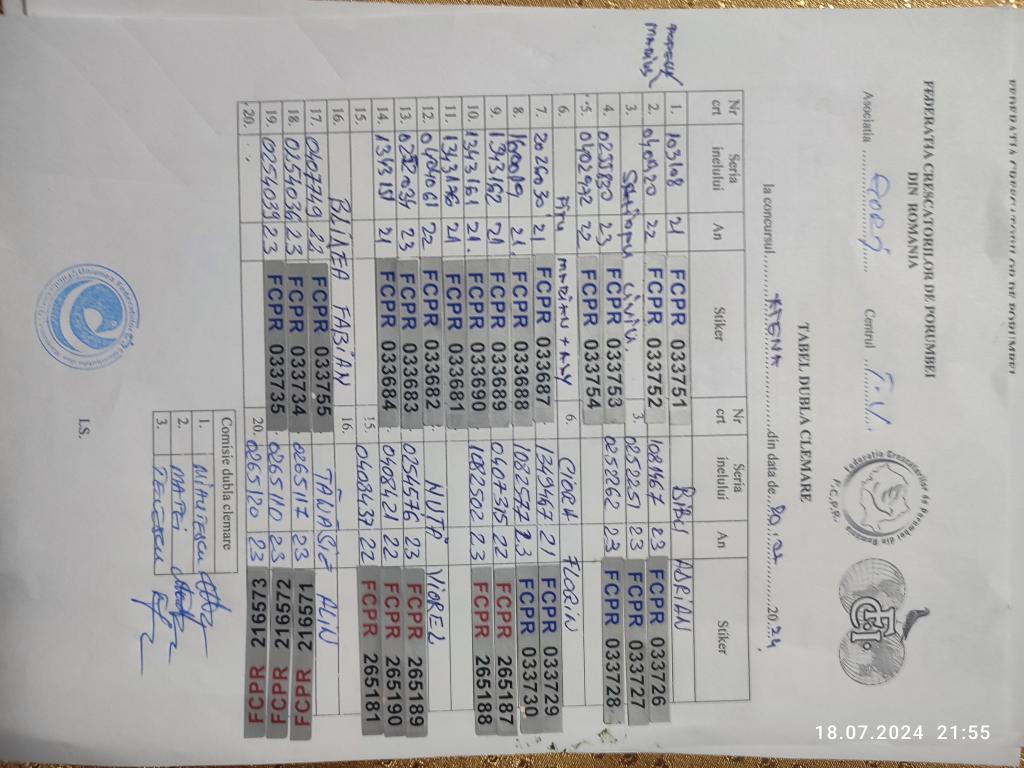 FEDERATIA CRESCATORILOR DE PORUMBEI
DIN ROMANIA
Asociatia GORJ Centrul
TABEL DUBLA CLEMARE
la concursul din data de 20.24
Nr crt Seria inelului An Stiker Nr crt Seria inelului An Stiker
1. 103108 21 FCPR 033751 BIBU ADRIAN
2. 22 FCPR 033752 1081467 23 FCPR 033726
3. LIVIU. 3. 0252251 23 FCPR 033727
4. 0255830 23 FCPR 033753 0252262 23 FCPR 033728
5. 0402742 22 FCPR 033754
6. Piru MARIAN + ALY 6. FLORIN
7. 2026030 21 FCPR 033687 1349467 21 FCPR 033729
8. 1600019 21 FCPR 033688 1082577 23 FCPR 033730
9. 1343162 21 FCPR 033689 0407315 22 FCPR 265187
10. 1343161 21. FCPR 033690 1082502 23 FCPR 265188
11. 1343176 21 FCPR 033681
12. 0404061 22 FCPR 033682 NUTĂ VIOREL
13. 23 FCPR 033683 0254576 23 FCPR 265189
14. 1343151 21 FCPR 033684 0408421 22 FCPR 265190
15. 15. 0408437 22 FCPR 265181
16. BLÎNEA FABIAN 16.
17. 0407749 22 FCPR 033755 TĂNASIE ALIN
18. 0254036 23 FCPR 033734 0265117 23 FCPR 216571
19. 0254039 23 FCPR 033735 0265110 23 FCPR 216572
20. 20. 0265120 23 FCPR 216573
Comisie dubla clemare
1.
2. MATEI
3.
I.S.
18.07.2024 21:55